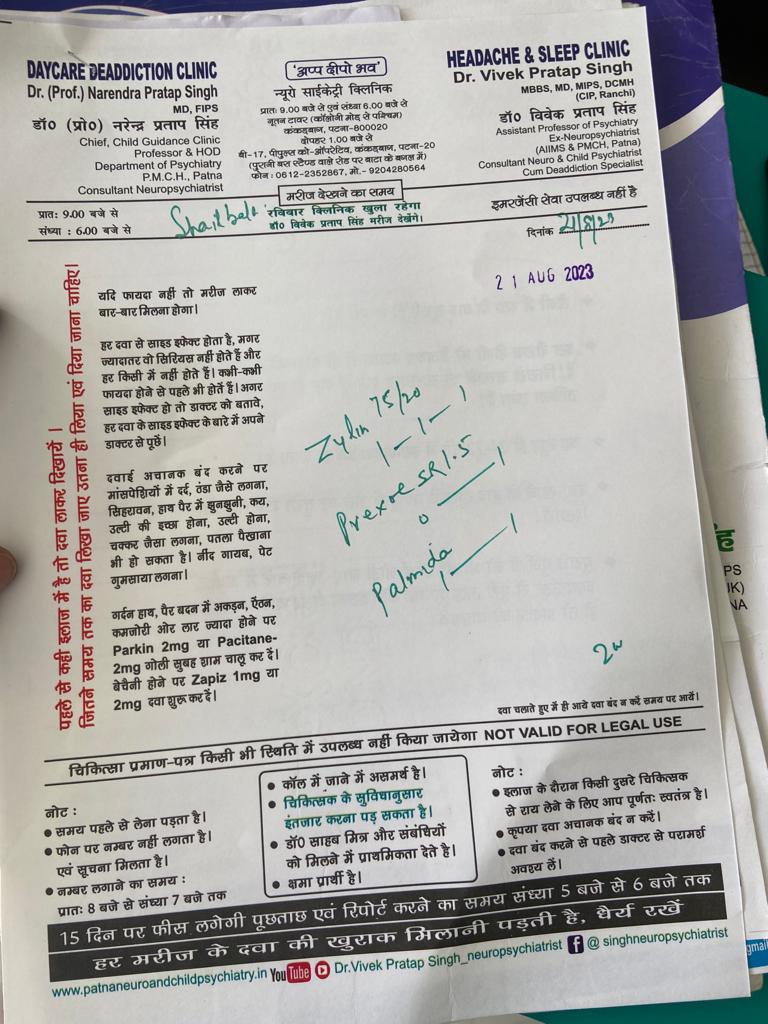 DAYCARE DEADDICTION CLINIC
Dr. (Prof.) Narendra Pratap Singh
MD, FIPS
डॉ० (प्रो०) नरेन्द्र प्रताप सिंह
Chief, Child Guidance Clinic
Professor & HOD
Department of Psychiatry
P.M.C.H., Patna
Consultant Neuropsychiatrist
'अप्प दीपो भव'
न्यूरो साईकेट्री क्लिनिक
प्रातः 9.00 बजे से एवं संध्या 6.00 बजे से
नूतन टावर (कॉलोनी मोड़ से पश्चिम)
कंकड़बाग, पटना-800020
दोपहर 1.00 बजे से
बी-17, पीपुल्स को-ऑपरेटिव, कंकड़बाग, पटना-20
(पुरानी बस स्टैण्ड वाले रोड पर बाटा के बगल में)
फोन : 0612-2352867, मो.- 9204280564
HEADACHE & SLEEP CLINIC
Dr. Vivek Pratap Singh
MBBS, MD, MIPS, DCMH
(CIP, Ranchi)
डॉ० विवेक प्रताप सिंह
Assistant Professor of Psychiatry
Ex-Neuropsychiatrist
(AIIMS & PMCH, Patna)
Consultant Neuro & Child Psychiatrist
Cum Deaddiction Specialist
मरीज देखने का समय
प्रात: 9.00 बजे से
संध्या : 6.00 बजे से
रविवार क्लिनिक खुला रहेगा
डॉ० विवेक प्रताप सिंह मरीज देखेंगे।
इमरजेंसी सेवा उपलब्ध नहीं है
दिनांक 21/8/23
21 AUG 2023
पहले से कही इलाज में है तो दवा लाकर दिखायें ।
जितने समय तक का दवा लिखा जाए उतना ही लिया एवं दिया जाना चाहिए।
यदि फायदा नहीं तो मरीज लाकर
बार-बार मिलना होगा।
हर दवा से साइड इफेक्ट होता है, मगर
ज्यादातर वो सिरियस नहीं होते हैं और
हर किसी में नहीं होते हैं। कभी-कभी
फायदा होने से पहले भी होतें हैं। अगर
साइड इफेक्ट हो तो डाक्टर को बतावे,
हर दवा के साइड इफेक्ट के बारे में अपने
डाक्टर से पूछें।
दवाई अचानक बंद करने पर
मांसपेशियों में दर्द, ठंडा जैसे लगना,
सिहरावन, हाथ पैर में झुनझुनी, कय,
उल्टी की इच्छा होना, उल्टी होना,
चक्कर जैसा लगना, पतला पैखाना
भी हो सकता है। नींद गायब, पेट
गुमसाया लगना।
गर्दन हाथ, पैर बदन में अकड़न, ऐंठन,
कमजोरी ओर लार ज्यादा होने पर
Parkin 2mg या Pacitane-
2mg गोली सुबह शाम चालू कर दें।
बेचैनी होने पर Zapiz 1mg या
2mg दवा शुरू कर दें।
75/20
1 – 1 – 1
SR 1.5
0 — 1
Palmida
1 — 1
2w
दवा चलाते हुए में ही आये दवा बंद न करें समय पर आयें।
चिकित्सा प्रमाण-पत्र किसी भी स्थिति में उपलब्ध नहीं किया जायेगा NOT VALID FOR LEGAL USE
नोट :
• समय पहले से लेना पड़ता है।
• फोन पर नम्बर नहीं लगता है।
एवं सूचना मिलता है।
• नम्बर लगाने का समय :
प्रातः 8 बजे से संध्या 7 बजे तक
• कॉल में जाने में असमर्थ है।
• चिकित्सक के सुविधानुसार
इंतजार करना पड़ सकता है।
• डॉ० साहब मित्र और संबंधियों
को मिलने में प्राथमिकता देते है।
• क्षमा प्रार्थी है।
नोट :
• इलाज के दौरान किसी दुसरे चिकित्सक
से राय लेने के लिए आप पूर्णतः स्वतंत्र है।
• कृपया दवा अचानक बंद न करें।
• दवा बंद करने से पहले डाक्टर से परामर्श
अवश्य लें।
15 दिन पर फीस लगेगी पूछताछ एवं रिपोर्ट करने का समय संध्या 5 बजे से 6 बजे तक
हर मरीज के दवा की खुराक मिलानी पड़ती है, धैर्य रखें
www.patnaneuroandchildpsychiatry.in YouTube Dr.Vivek Pratap Singh_neuropsychiatrist f @ singhneuropsychiatrist